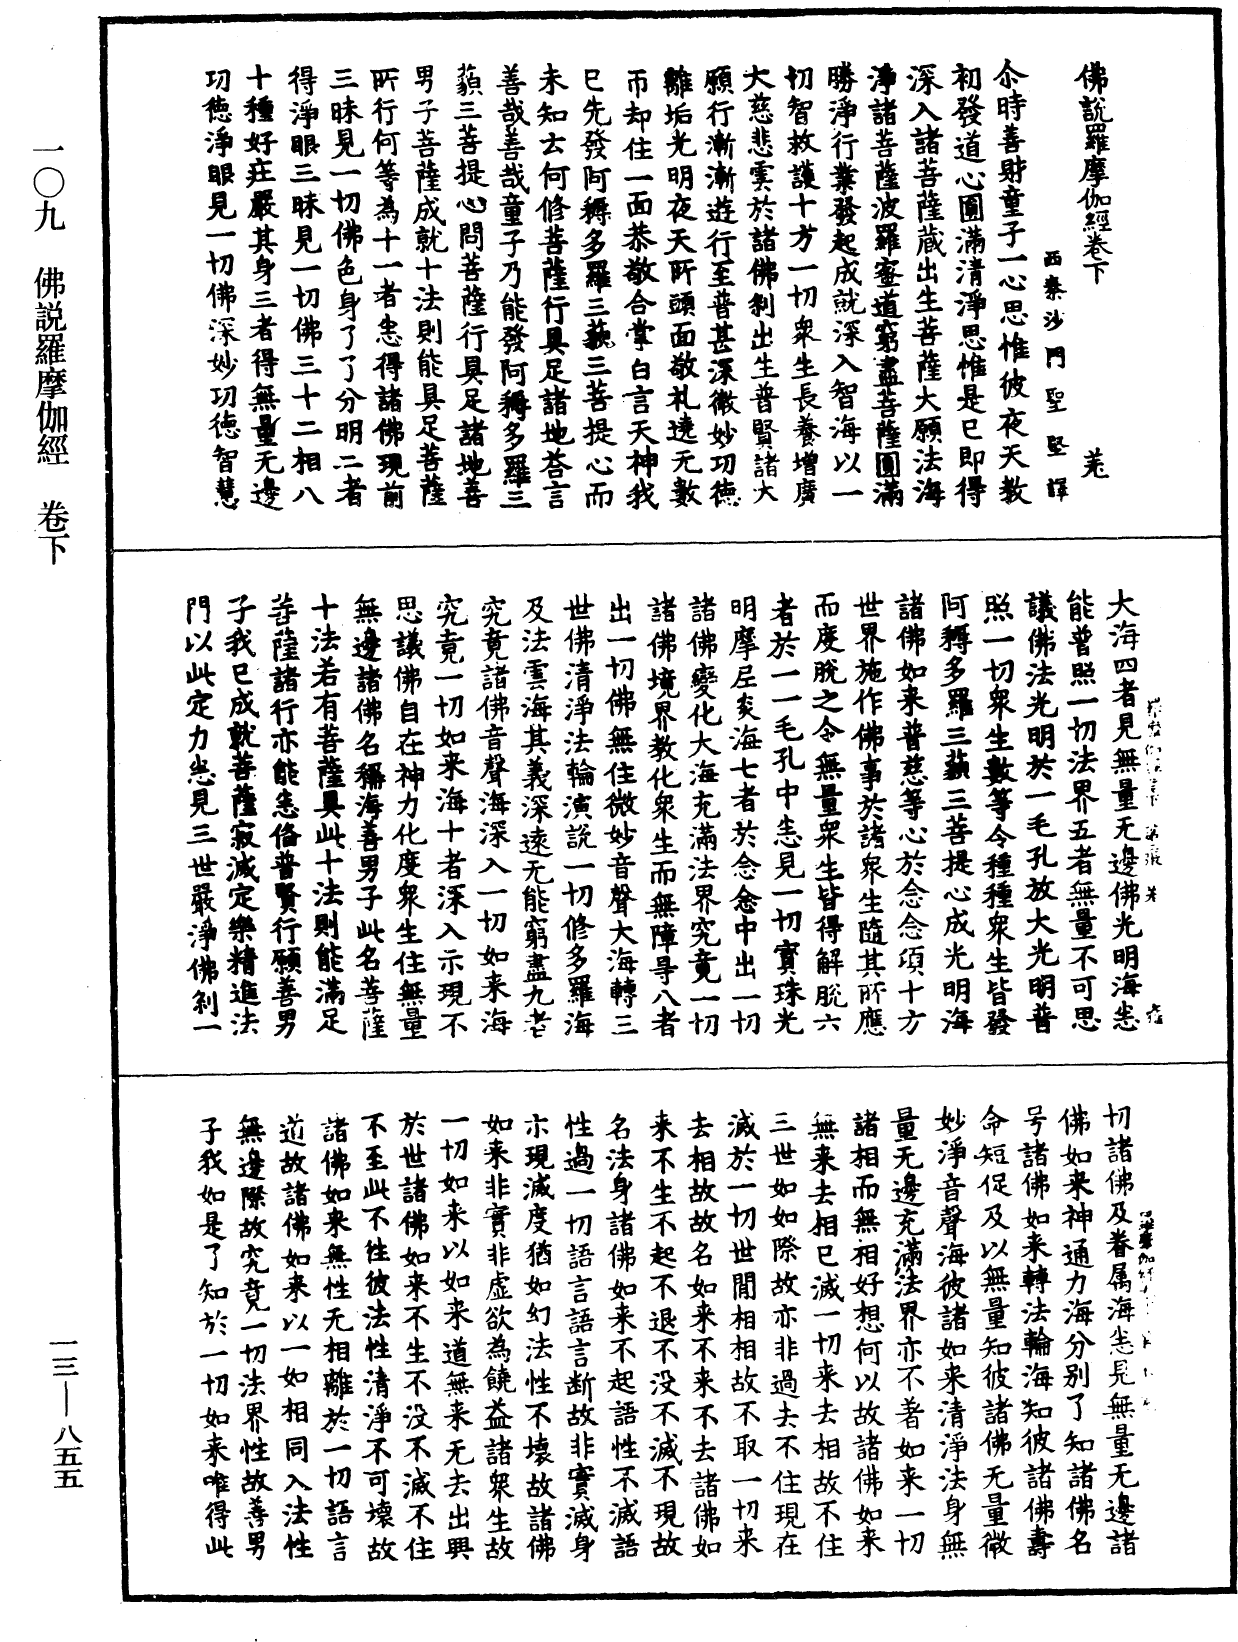 佛說羅摩伽經卷下
西秦沙門聖堅譯
尒時善財童子一心思惟彼夜天教
初發道心圓滿清淨思惟是已即得
深入諸菩薩藏出生菩薩大願法海
淨諸菩薩波羅蜜道窮盡菩薩圓滿
勝淨行業發起成就深入智海以一
切智救護十方一切衆生長養增廣
大慈悲雲於諸佛刹出生普賢諸大
願行漸漸遊行至普甚深微妙功德
離垢光明夜天所頭面敬礼遶无數
帀却住一面恭敬合掌白言天神我
已先發阿耨多羅三藐三菩提心而
未知云何修菩薩行具足諸地荅言
善哉善哉童子乃能發阿耨多羅三
藐三菩提心問菩薩行具足諸地善
男子菩薩成就十法則能具足菩薩
所行何等為十一者悉得諸佛現前
三昧見一切佛色身了了分明二者
得淨眼三昧見一切佛三十二相八
十種好莊嚴其身三者得無量无邊
功德淨眼見一切佛深妙功德智慧
大海四者見無量无邊佛光明海悉
能普照一切法界五者無量不可思
議佛法光明於一毛孔放大光明普
照一切衆生數等令種種衆生皆發
阿耨多羅三藐三菩提心成光明海
諸佛如来普慈等心於念念項十方
世界施作佛事於諸衆生隨其所應
而度脫之令無量衆生皆得解脫六
者於一一毛孔中悉見一切寳珠光
明摩尼炎海七者於念念中出一切
諸佛變化大海充滿法界究竟一切
諸佛境界教化衆生而無障㝵八者
出一切佛無住微妙音聲大海轉三
世佛清淨法輪演說一切修多羅海
及法雲海其義深遠无能窮盡九者
究竟諸佛音聲海深入一切如来海
究竟一切如来海十者深入示現不
思議佛自在神力化度衆生住無量
無邊諸佛名稱海善男子此名菩薩
十法若有菩薩具此十法則能滿足
菩薩諸行亦能悉俻普賢行願善男
子我已成就菩薩寂滅定樂精進法
門以此定力悉見三世嚴淨佛刹一
切諸佛及眷属海悉見無量无邊諸
佛如来神通力海分别了知諸佛名
号諸佛如来轉法輪海知彼諸佛壽
命短促及以無量知彼諸佛无量微
妙淨音聲海彼諸如来清淨法身無
量无邊充滿法界亦不著如来一切
諸相而無相好想何以故諸佛如来
無来去相已滅一切来去相故不住
三世如如際故亦非過去不住現在
滅於一切世間相相故不取一切来
去相故故名如来不来不去諸佛如
来不生不起不退不没不滅不現故
名法身諸佛如来不起語性不滅語
性過一切語言語言断故非實滅身
示現滅度猶如幻法性不壞故諸佛
如来非實非虛欲為饒益諸衆生故
一切如来以如来道無来无去出興
於世諸佛如来不生不没不滅不住
不至此不往彼法性清淨不可壞故
諸佛如来無性无相離於一切語言
道故諸佛如来以一如相同入法性
無邊際故究竟一切法界性故善男
子我如是了知於一切如来唯得此
一〇九　佛説羅摩伽經　卷下
一三—八五五